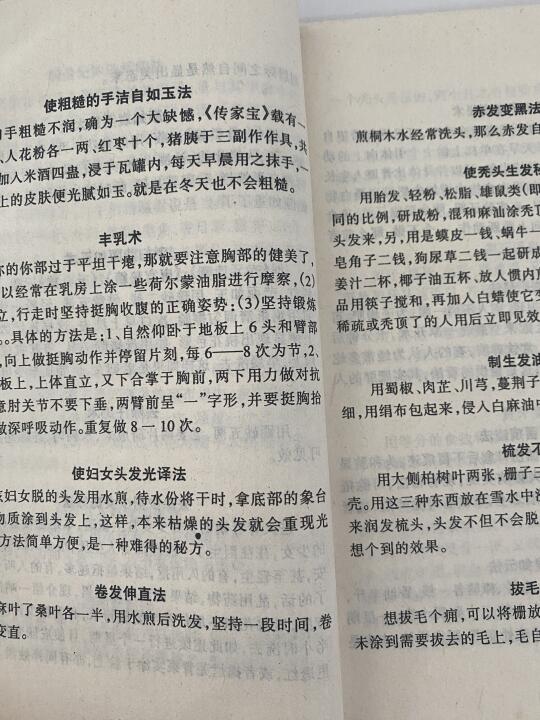 使粗糙的手洁自如玉法
手粗糙不润,确为一个大缺憾,《传家宝》载有一
人花粉各一两,红枣十个,猪胰于三副作作具,共
加入米酒四蛊,浸于瓦罐内,每天早晨用之抹手,一
上的皮肤便光腻如玉。就是在冬天也不会粗糙。
丰乳术
你的你部过于平坦干瘪,那就要注意胸部的健美了,
以经常在乳房上涂一些荷尔蒙油脂进行摩察,(2)
立,行走时坚持挺胸收腹的正确姿势;(3)坚持锻炼
。具体的方法是;1、自然仰卧于地板上6头和臂部
,向上做挺胸动作并停留片刻,每6——8次为节,2、
板上,上体直立,又下合掌于胸前,两下用力做对抗
意肘关节不要下垂,两臂前呈"一"字形,并要挺胸抬
做深呼吸动作。重复做8—10次。
使妇女头发光译法
妇女脱的头发用水煎,待水份将干时,拿底部的象台
物质涂到头发上,这样,本来枯燥的头发就会重现光
方法简单方便,是一种难得的秘方。
卷发伸直法
麻叶了桑叶各一半,用水煎后洗发,坚持一段时间,卷
变直。
赤发变黑法
煎桐木水经常洗头,那么赤发自
使秃头生发秘
用胎发、轻粉、松脂、雄鼠类(即
同的比例,研成粉,混和麻油涂秃顶
头发来,另,用是蟆皮一钱、蜗牛一
皂角子二钱,狗尿草二钱一起研成
姜汁二杯,椰子油五杯,放人惯内煎
品用筷子搅和,再加人白蜡使它变
稀疏或秃顶了的人用后立即见效
制生发油
用蜀椒、肉芷、川芎,蔓荆子
细,用绢布包起来,侵人白麻油中
梳发不
用大侧柏树叶两张,栅子三
壳。用这三种东西放在雪水中浸
来润发梳头,头发不但不会脱
想个到的效果。
拔毛
想拔毛个痛,可以将栅放
未涂到需要拔去的毛上,毛自